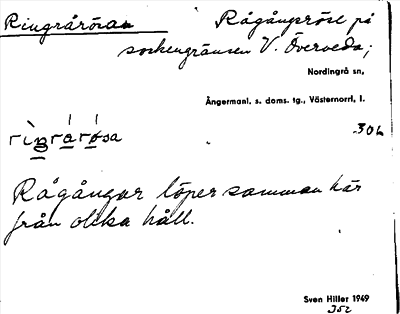 Ringråröran Rågångsröse på
sockengränsen V. Överveda;
Nordingrå sn,
Ångermanl. s. doms. tg., Västernorrl. l.
30 h
ringrårøsa
Rågångar löper samman här
från olika håll.
Sven Hiller 1949